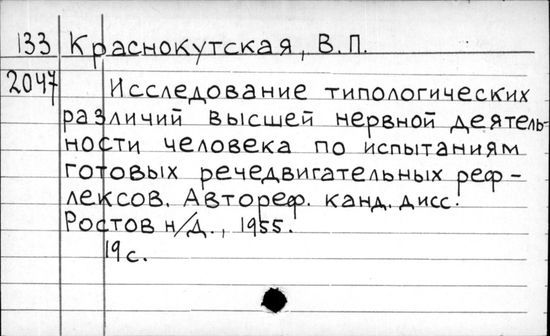 133 Краснокутская, В.П.
2047 Исследование типологических
различий высшей нервной деятель-
ности человека по испытаниям
готовых речедвигательных реф-
лексов. Автореф. канд. дисс.
Ростов н/Д., 1955.
19 с.